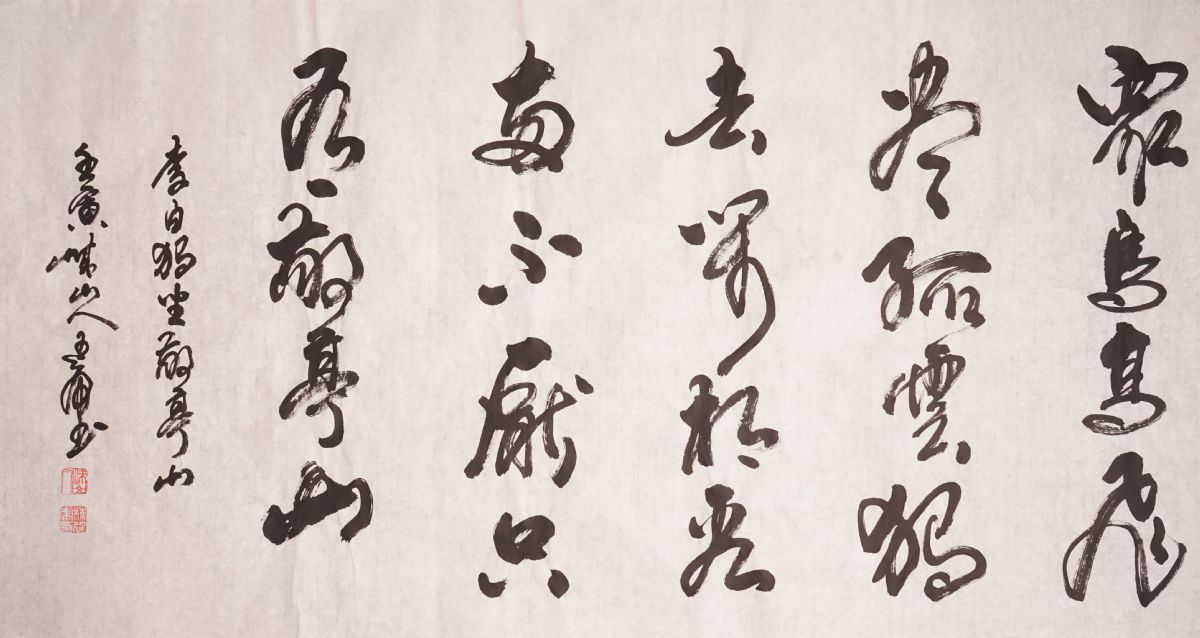 眾鳥高飛
盡孤雲獨
去閑相看
兩不厭只
有敬亭山
李白獨坐敬亭山
壬寅山人王書